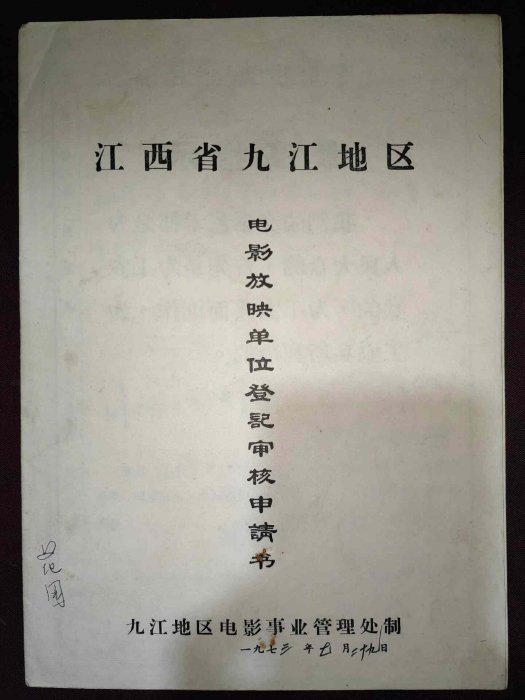 江西省九江地区
电影放映单位登记审核申請书
九江地区电影事业管理处制
一九七三年七月二十九日